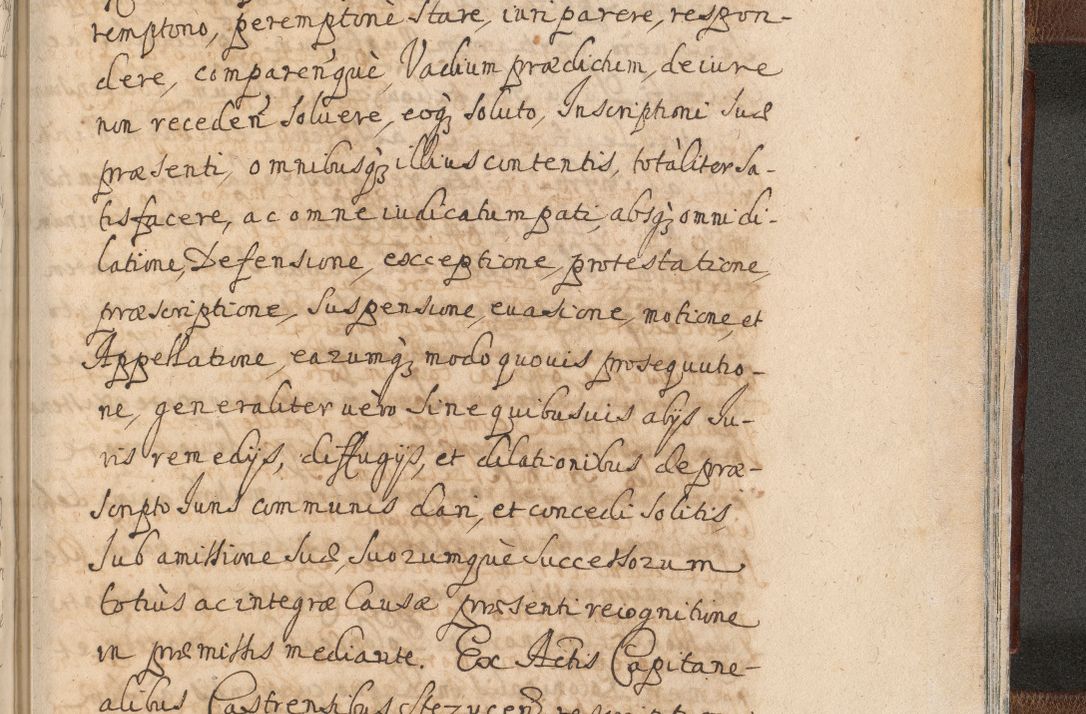 remptorio, peremptoriè stare, iuri parere, respon-
dere, comparen'què Vadium prædictum, de iure
non receden' soluere, eoq3 soluto, Inscriptioni suæ
præsenti, omnibusq3 illius contentis, totàliter sa-
tisfacere, ac omne iudicatum pati, absq3 omni di-
latione, Defensione, exceptione, protestatione,
præscriptione, suspensione, euasione, motione, et
Appellatione, earumq3 modo quouis prosequutio-
ne, generaliter uèro sine quibusuis alijs Iu-
ris remedijs, diffugijs, et dilationibus de præ-
scripto Iuris communis dari, et concedi solitis,
sub amissione suæ, suorumquè successorum
totiùs ac integræ Causæ præsenti recognitione
in præmissis mediante. Ex Actis Capitane-
alibus Castrensibus